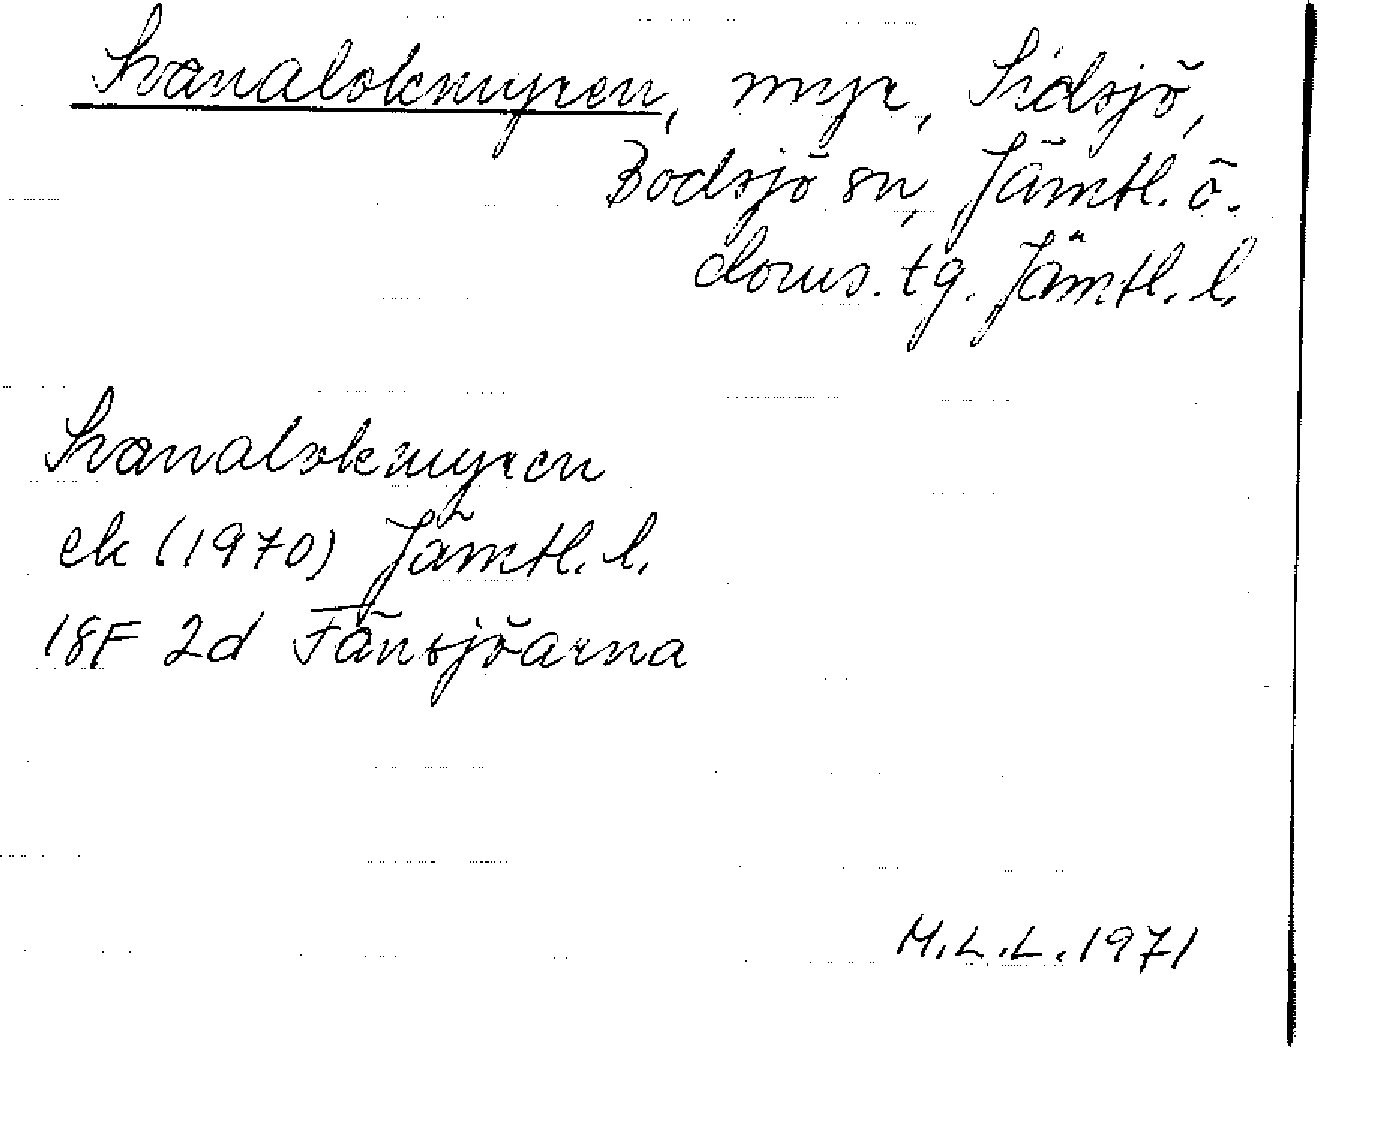 Svanalokmyren, myr, Sidsjö,
Bodsjö sn, Jämtl. ö.
doms. tg. Jämtl. l.
Svanalokmyren
ek (1970) Jämtl. l.
18F 2d Fänsjöarna
M.L.L. 1971